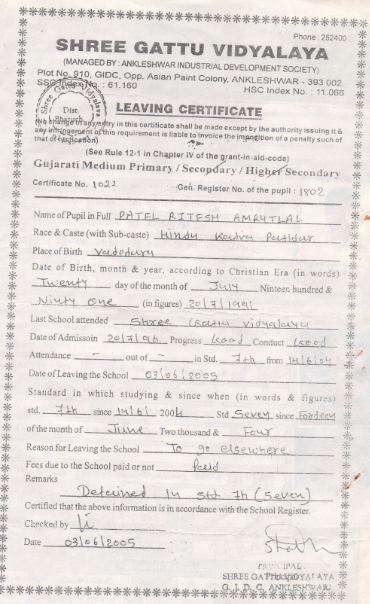 Phone : 252400
SHREE GATTU VIDYALAYA
(MANAGED BY : ANKLESHWAR INDUSTRIAL DEVELOPMENT SOCIETY)
Plot No. 910, GIDC, Opp. Asian Paint Colony, ANKLESHWAR - 393 002.
SSC Index No. : 61.160 HSC Index No. : 11.066
LEAVING CERTIFICATE
(No change in any entry in this certificate shall be made except by the authority issuing it &
any infringement of this requirement is liable to invoice the imposition of a penalty such of
that of
(See Rule 12-1 in Chapter IV of the grant-in-aid-code)
Gujarati Medium Primary / Secondary / Higher Secondary
Certificate No. 1022 Gen. Register No. of the pupil : 1802
Name of Pupil in Full PATEL RITESH AMRUTLAL
Race & Caste (with Sub-caste) Hindu Kadva Patidar
Place of Birth Vadodara
Date of Birth, month & year, according to Christian Era (in words)
Twenty day of the month of July Ninteen hundred &
Ninty one (in figures) 20/7/1991
Last School attended Shree Gattu Vidyalaya
Date of Admissoin 20/7/96 Progress Good Conduct Good
Attendance - out of - in Std. 7th from 14/6/04
Date of Leaving the School 03/06/2005
Standard in which studying & since when (in words & figures)
std. 7th since 14/6/ 2004 Std Seven since
of the month of June Two thousand & Four
Reason for Leaving the School To go elsewhere
Fees due to the School paid or not Paid
Remarks
Detained in std 7h (Seven)
Certified that the above information is in accordance with the School Register.
Checked by
Date 03/06/2005
PRINCIPAL
SHREE GATTU VIDYALAYA
G. I. D. C. ANKLESHWAR